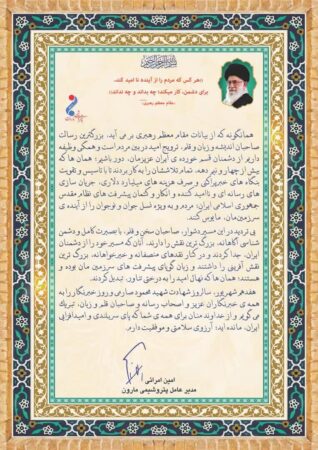 «هر کس که مردم را از آینده نا امید کند،
برای دشمن، کار میکند؛ چه بداند و چه نداند»
«مقام معظم رهبری»
همانگونه که از بیانات مقام معظم رهبری بر می آید، بزرگترین رسالت
صاحبان اندیشه و زبان و قلم، ترویج امید در بین مردم است و همگی وظیفه
داریم از دشمنان قسم خورده ی ایران عزیزمان، دور باشیم؛ همان ها که
بیش از چهار و نیم دهه، تمام تلاششان را به کار بردند تا با تاسیس و تقویت
بنگاه های خبرپراکنی و صرف هزینه های میلیارد دلاری، جریان سازی
های رسانه ای و ناامید کننده و انکار و کمیان پیشرفت های نظام مقدس
جمهوری اسلامی ایران، مردم و به ویژه نسل جوان و نوجوان را از آینده ی
سرزمین‌مان، مایوس کنند.
بی تردید در این مسیر دشوار، صاحبان سخن و قلم، با بصیرت کامل و دشمن
شناسی آگاهانه، بزرگ ترین نقش را دارند. آنان که مسیر خود را از دشمنان
ایران، جدا کردند و در کنار نقدهای منصفانه و خیرخواهانه، بزرگ ترین
نقش آفرینی را داشتند و زبان گویای پیشرفت های سرزمین مان بوده و
هستند؛ همان ها که نهال امید را به درختی تناور، تبدیل کردند.
هفدهم شهریور، سالروز شهادت شهید محمود صارمی و روز خبرنگار را به
همه ی خبرنگاران عزیز و اصحاب رسانه و صاحبان قلم و زبان، تبریک
می گویم و از خداوند منان برای همه ی شما که پای سربلندی و امیدافزایی
ایران، مانده اید؛ آرزوی سلامتی و موفقیت دارم.
امین امرائی
مدیر عامل پتروشیمی مارون